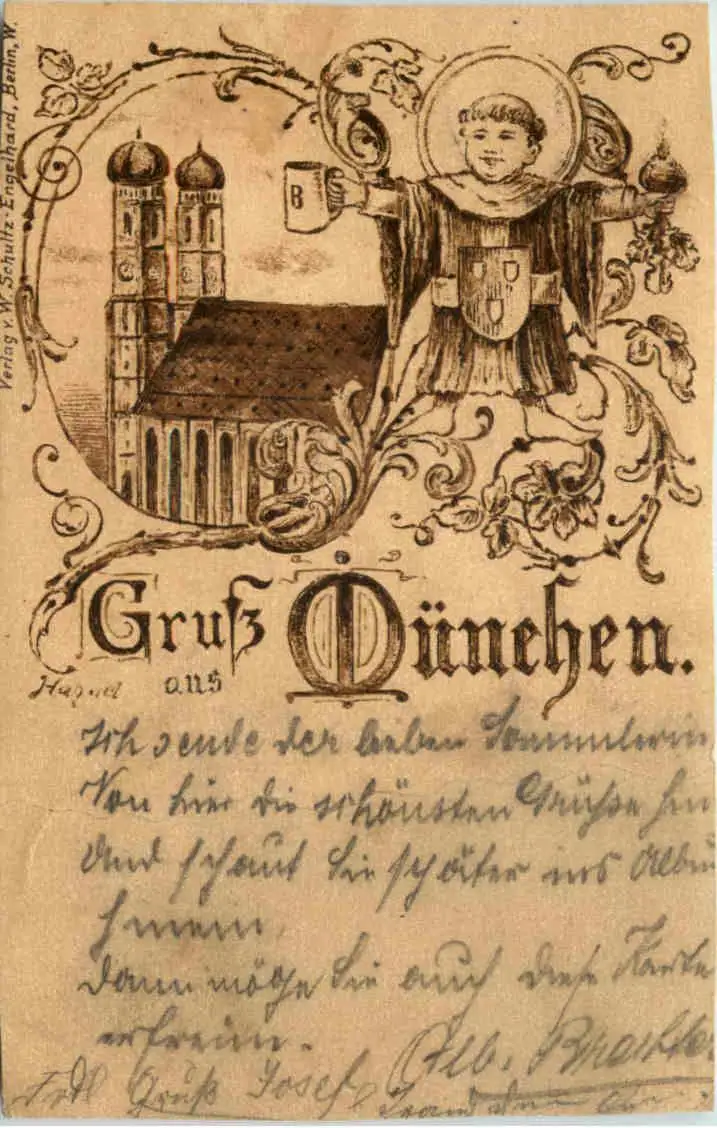 Verlag v. W. Schultz-Engelhard, Berlin, W.
B
Gruß aus München.
Ich sende der lieben Sammlerin
Von hier die schönsten Grüße hin
Und schaut Sie später ins Album
hinein,
Dann möge Sie auch diese Karte
erfreun.
Alb.
Frdl Gruß Josef